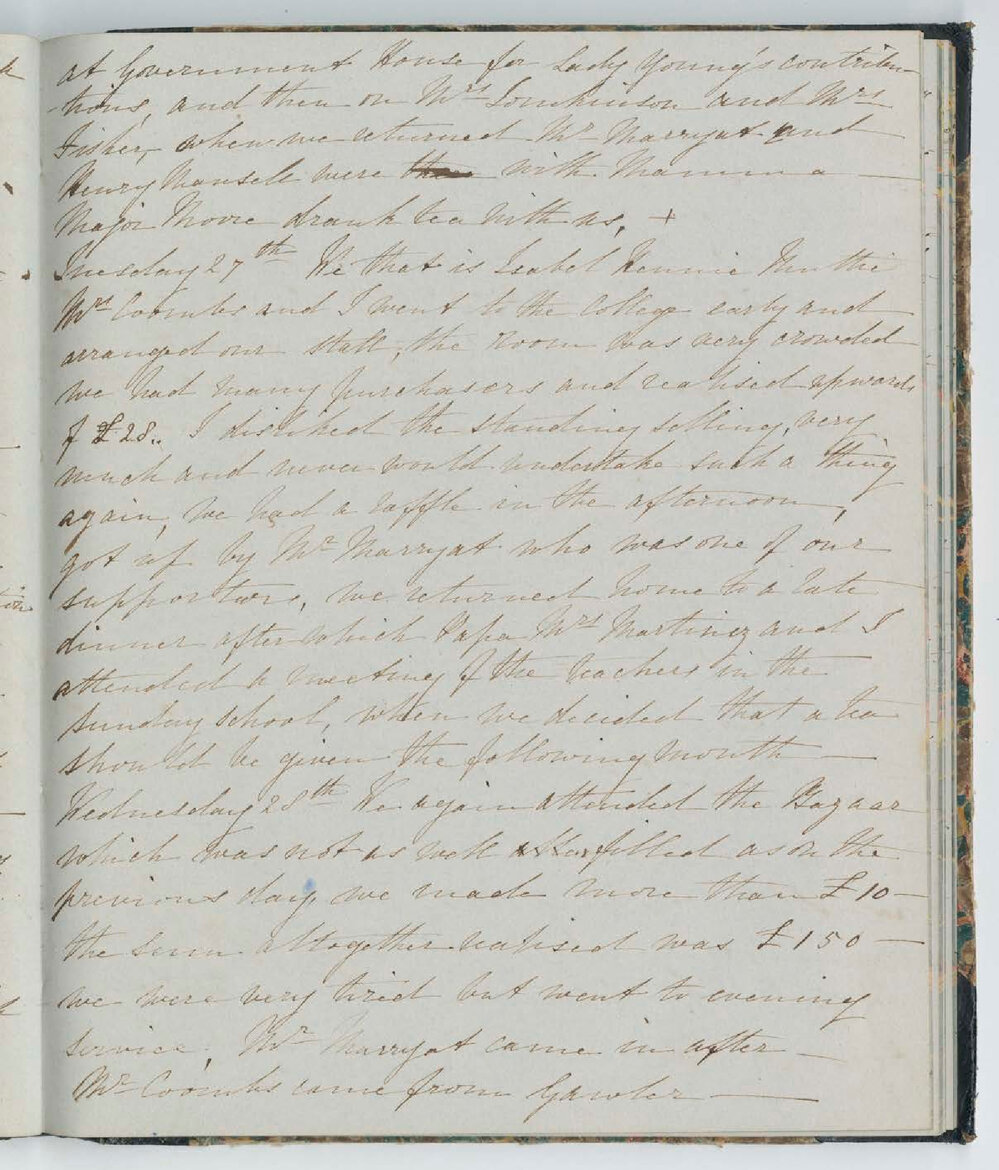 at Government House for Lady Young's contribu-
-tions, and then on Mrs Tomkinson and Mrs
Fisher, when we returned Mr Marryat and
Henry Mansell were with Mamma —
Major Moore drank tea with us, +
Tuesday 27th We that is Isabel Kennie
Mrs Coombs and I went to the College early and
arranged our stall, the Room was very crowded
we had many purchasers and realised upwards
of £28.. I disliked the standing selling, very
much and never would undertake such a thing
again, we had a raffle in the afternoon,
got up by Mr Marryat who was one of our
supporters, we returned home to a late
dinner after which Papa Mrs Martinez and I
attended a meeting of the teachers in the
Sunday school, when we decided that a tea
should be given the following month —
Wednesday 28th We again attended the Bazaar
which was not as well filled as on the
previous day, we made more than £10 —
the sum altogether realised was £150 —
we were very tired but went to evening
service, Mr Marryat came in after —
Mr Coombs came from Gawler —